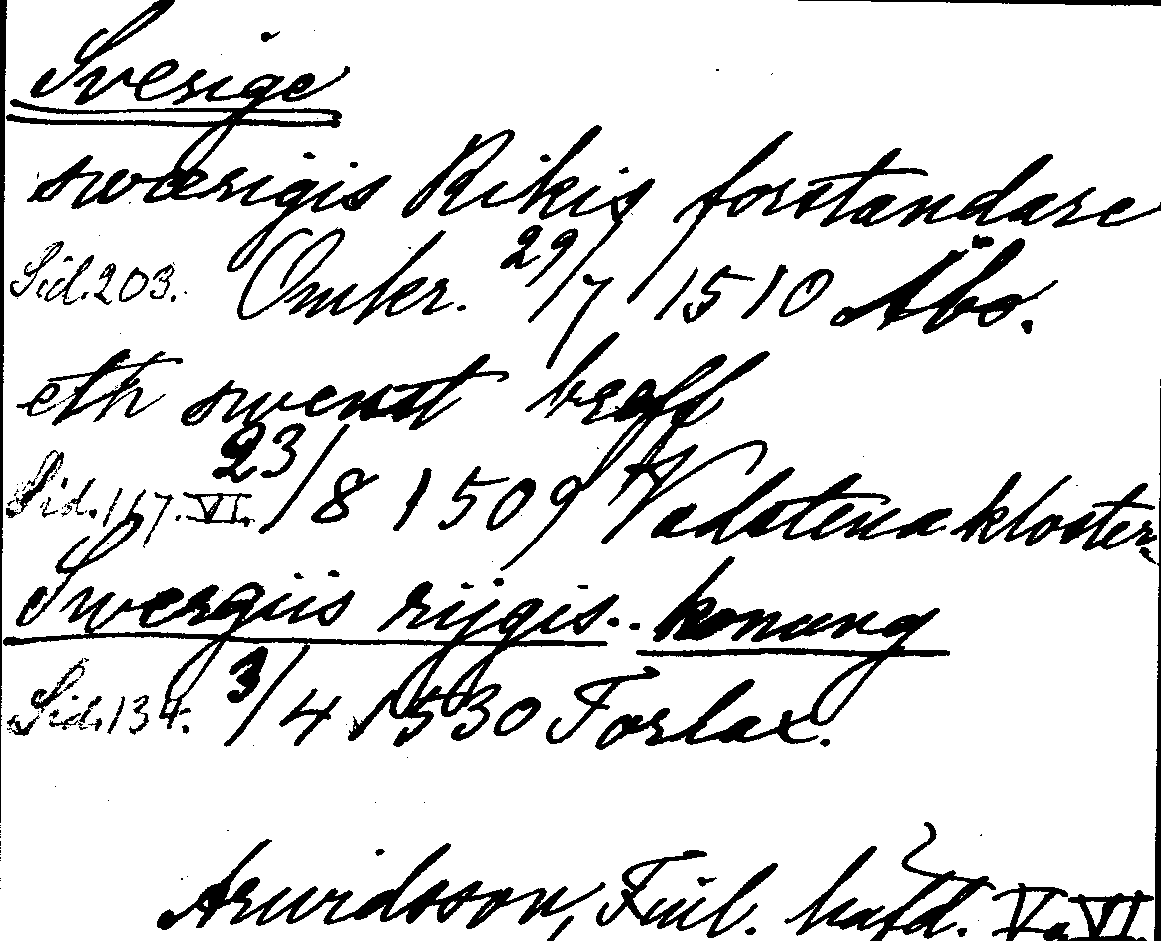 Sverige
swærigis Rikis forstandare
Sid. 203. Omkr. 29/7 1510 Åbo.
eth swenst breff
Sid. 167. VI. 23/8 1509 Vadstena kloster.
Swergiis rijgis.. konung
Sid. 134. 3/4 1530 Forlax.
Arwidsson, Finl. häfd. V o VI.